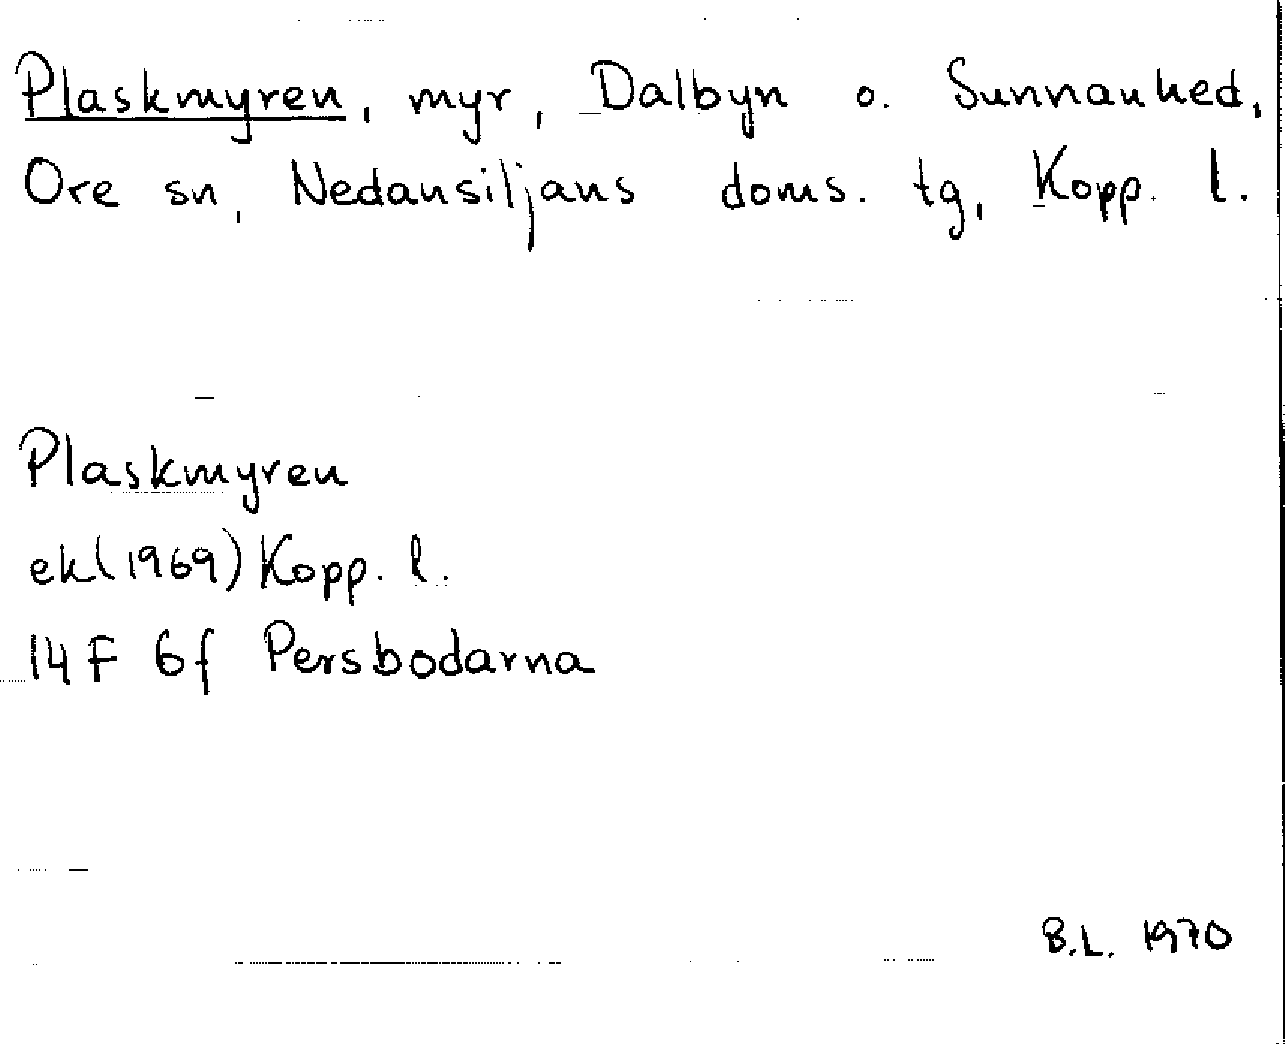 Plaskmyren, myr, Dalbyn o. Sunnanhed,
Ore sn, Nedansiljans doms. tg, Kopp. l.
Plaskmyren
ek(1969) Kopp. l.
14F 6f Persbodarna
B.L. 1970